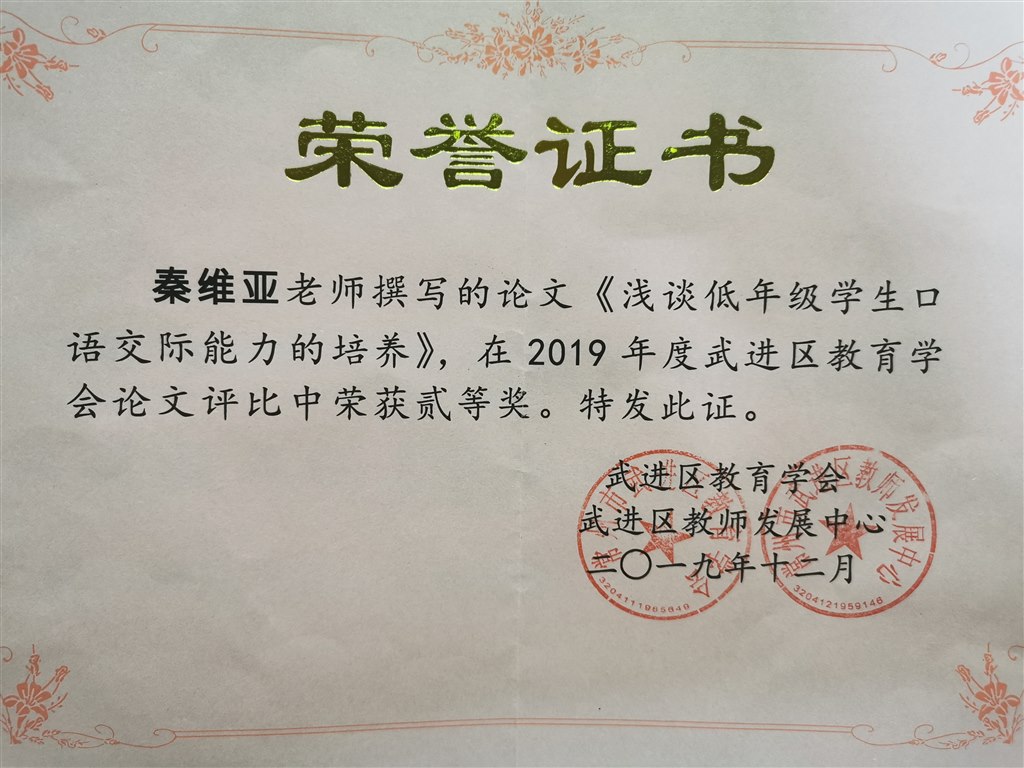 荣誉证书
秦维亚老师撰写的论文《浅谈低年级学生口
语交际能力的培养》，在2019年度武进区教育学
会论文评比中荣获贰等奖。特发此证。
武进区教育学会
武进区教师发展中心
二〇一九年十二月
常州市武进区教育学会
3204111965649
常州市武进区教师发展中心
3204121959146